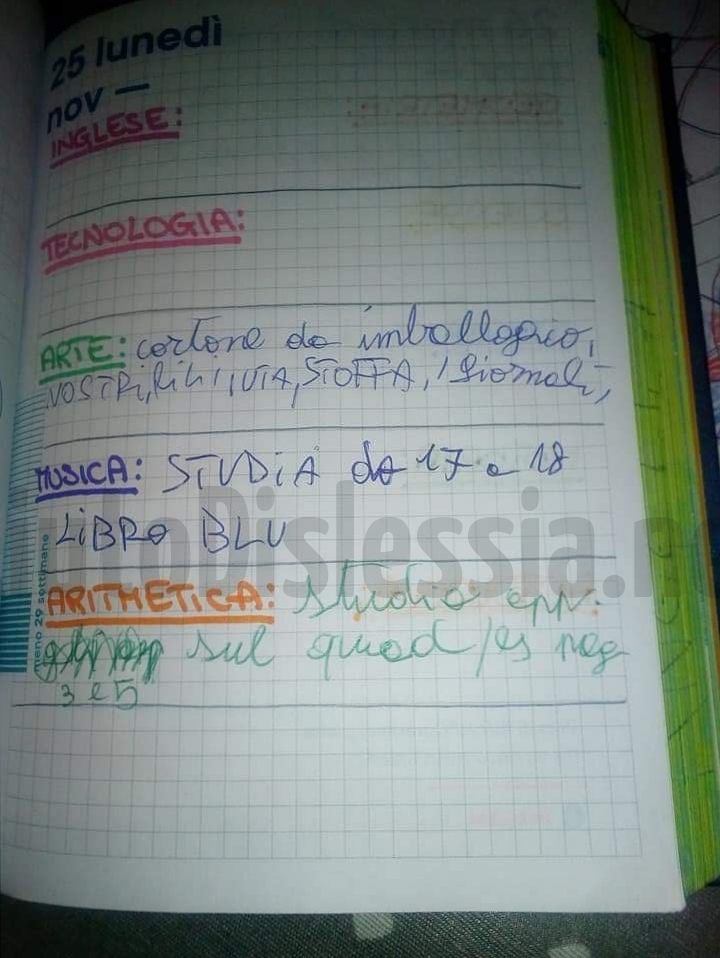 25 lunedì
nov —
INGLESE:
TECNOLOGIA:
ARTE: cartone da imballaggio,
NOSTRI, FILI, IUTA, STOFFA, giornali,
MUSICA: STUDIA da 17 a 18
LIBRO BLU
ARITMETICA: studio app.
sul quad/es pag
3 e 5
meno 29 settimane
Dislessia.